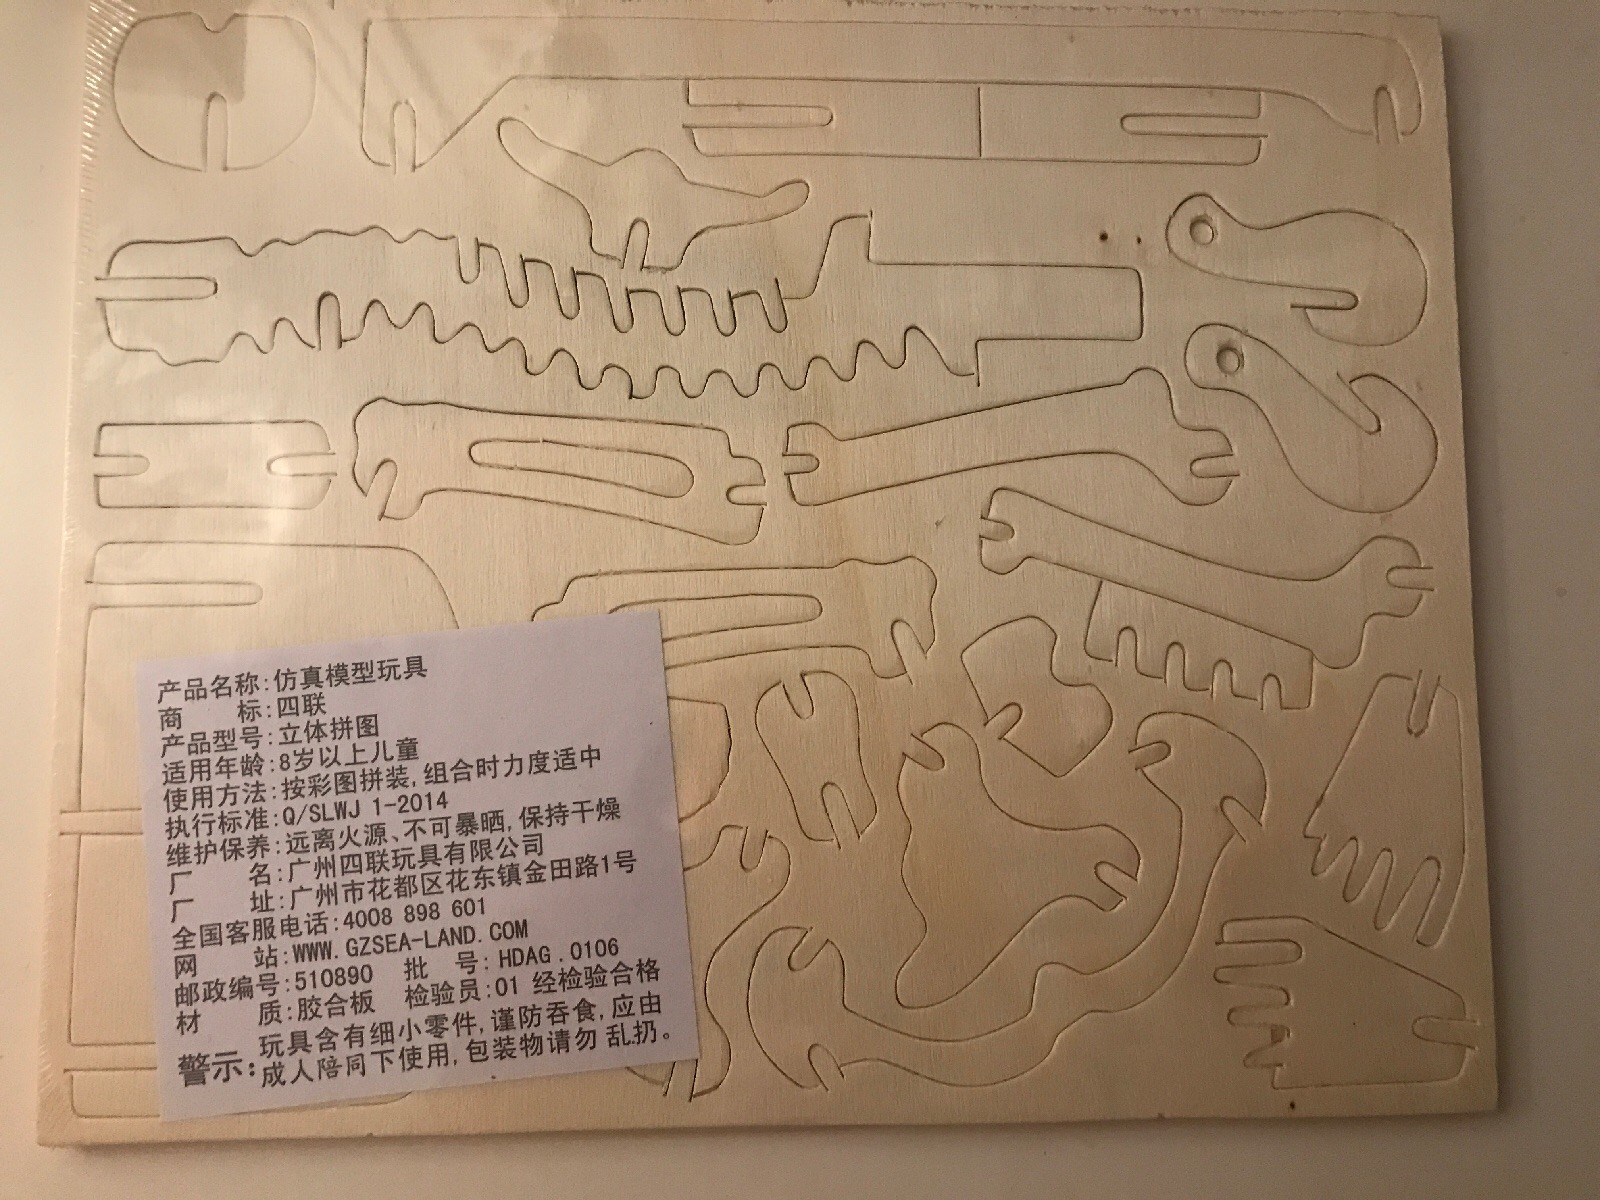 产品名称:仿真模型玩具
商 标:四联
产品型号:立体拼图
适用年龄:8岁以上儿童
使用方法:按彩图拼装,组合时力度适中
执行标准:Q/SLWJ 1-2014
维护保养:远离火源、不可暴晒,保持干燥
厂 名:广州四联玩具有限公司
厂 址:广州市花都区花东镇金田路1号
全国客服电话:4008 898 601
网 站:WWW.GZSEA-LAND.COM
邮政编号:510890 批 号:HDAG.0106
材 质:胶合板 检验员:01 经检验合格
警示:玩具含有细小零件,谨防吞食,应由
成人陪同下使用,包装物请勿乱扔。